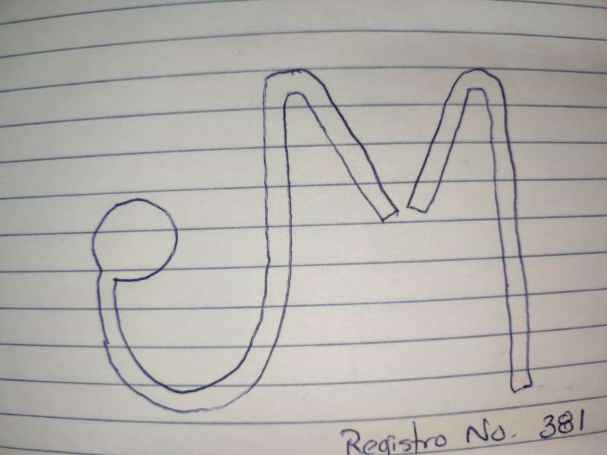 M
Registro No. 381